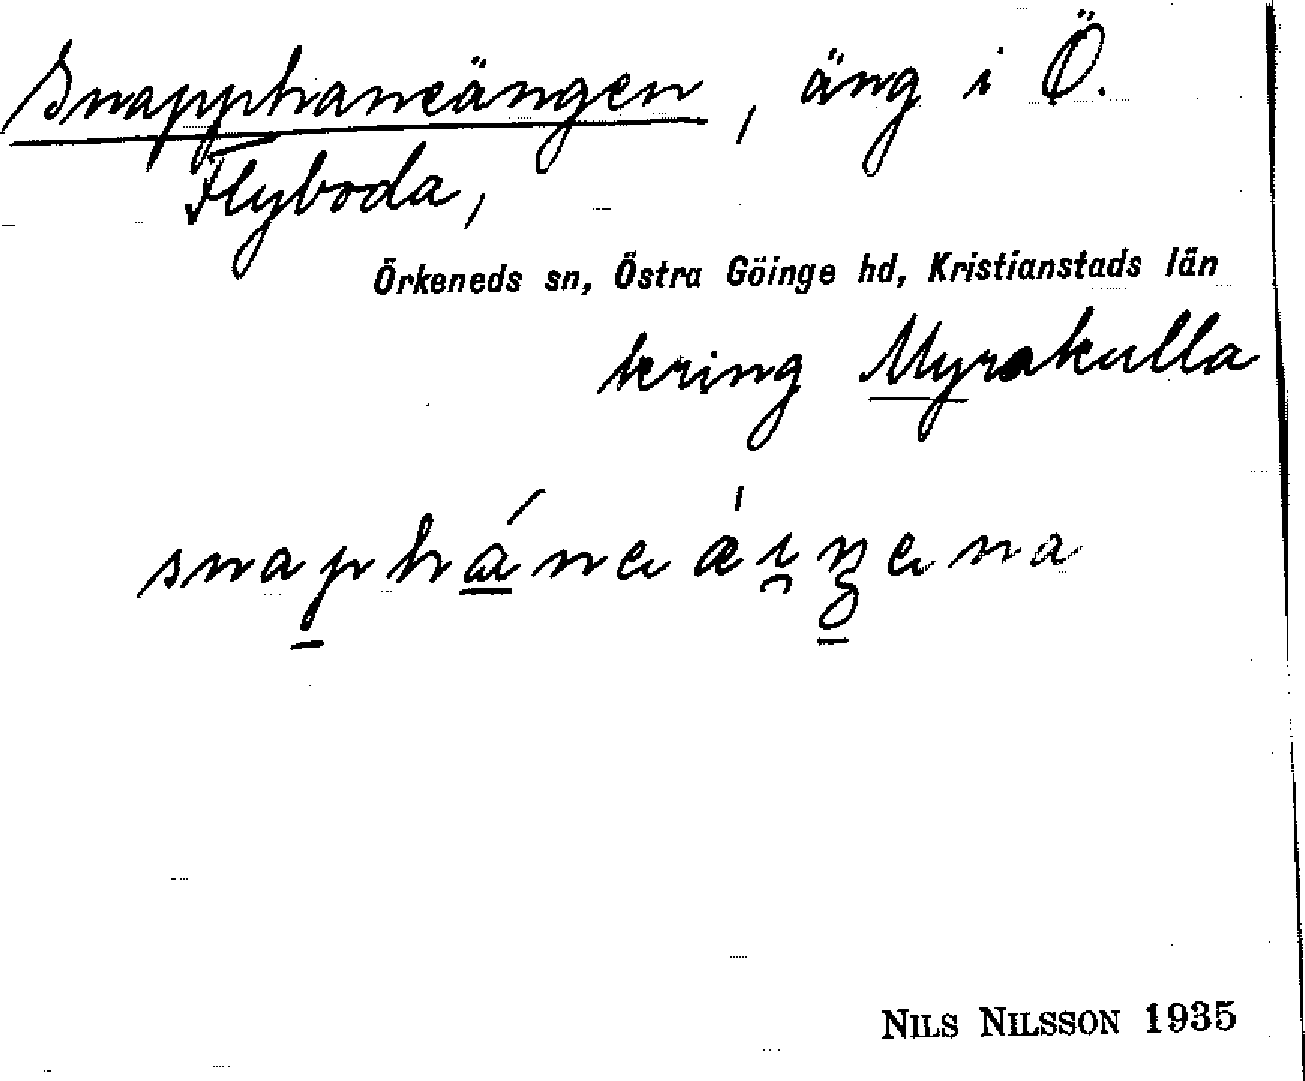 Snapphaneängen, äng i Ö.
Flyboda,
Örkeneds sn, Östra Göinge hd, Kristianstads län
kring Myrakulla
NILS NILSSON 1935